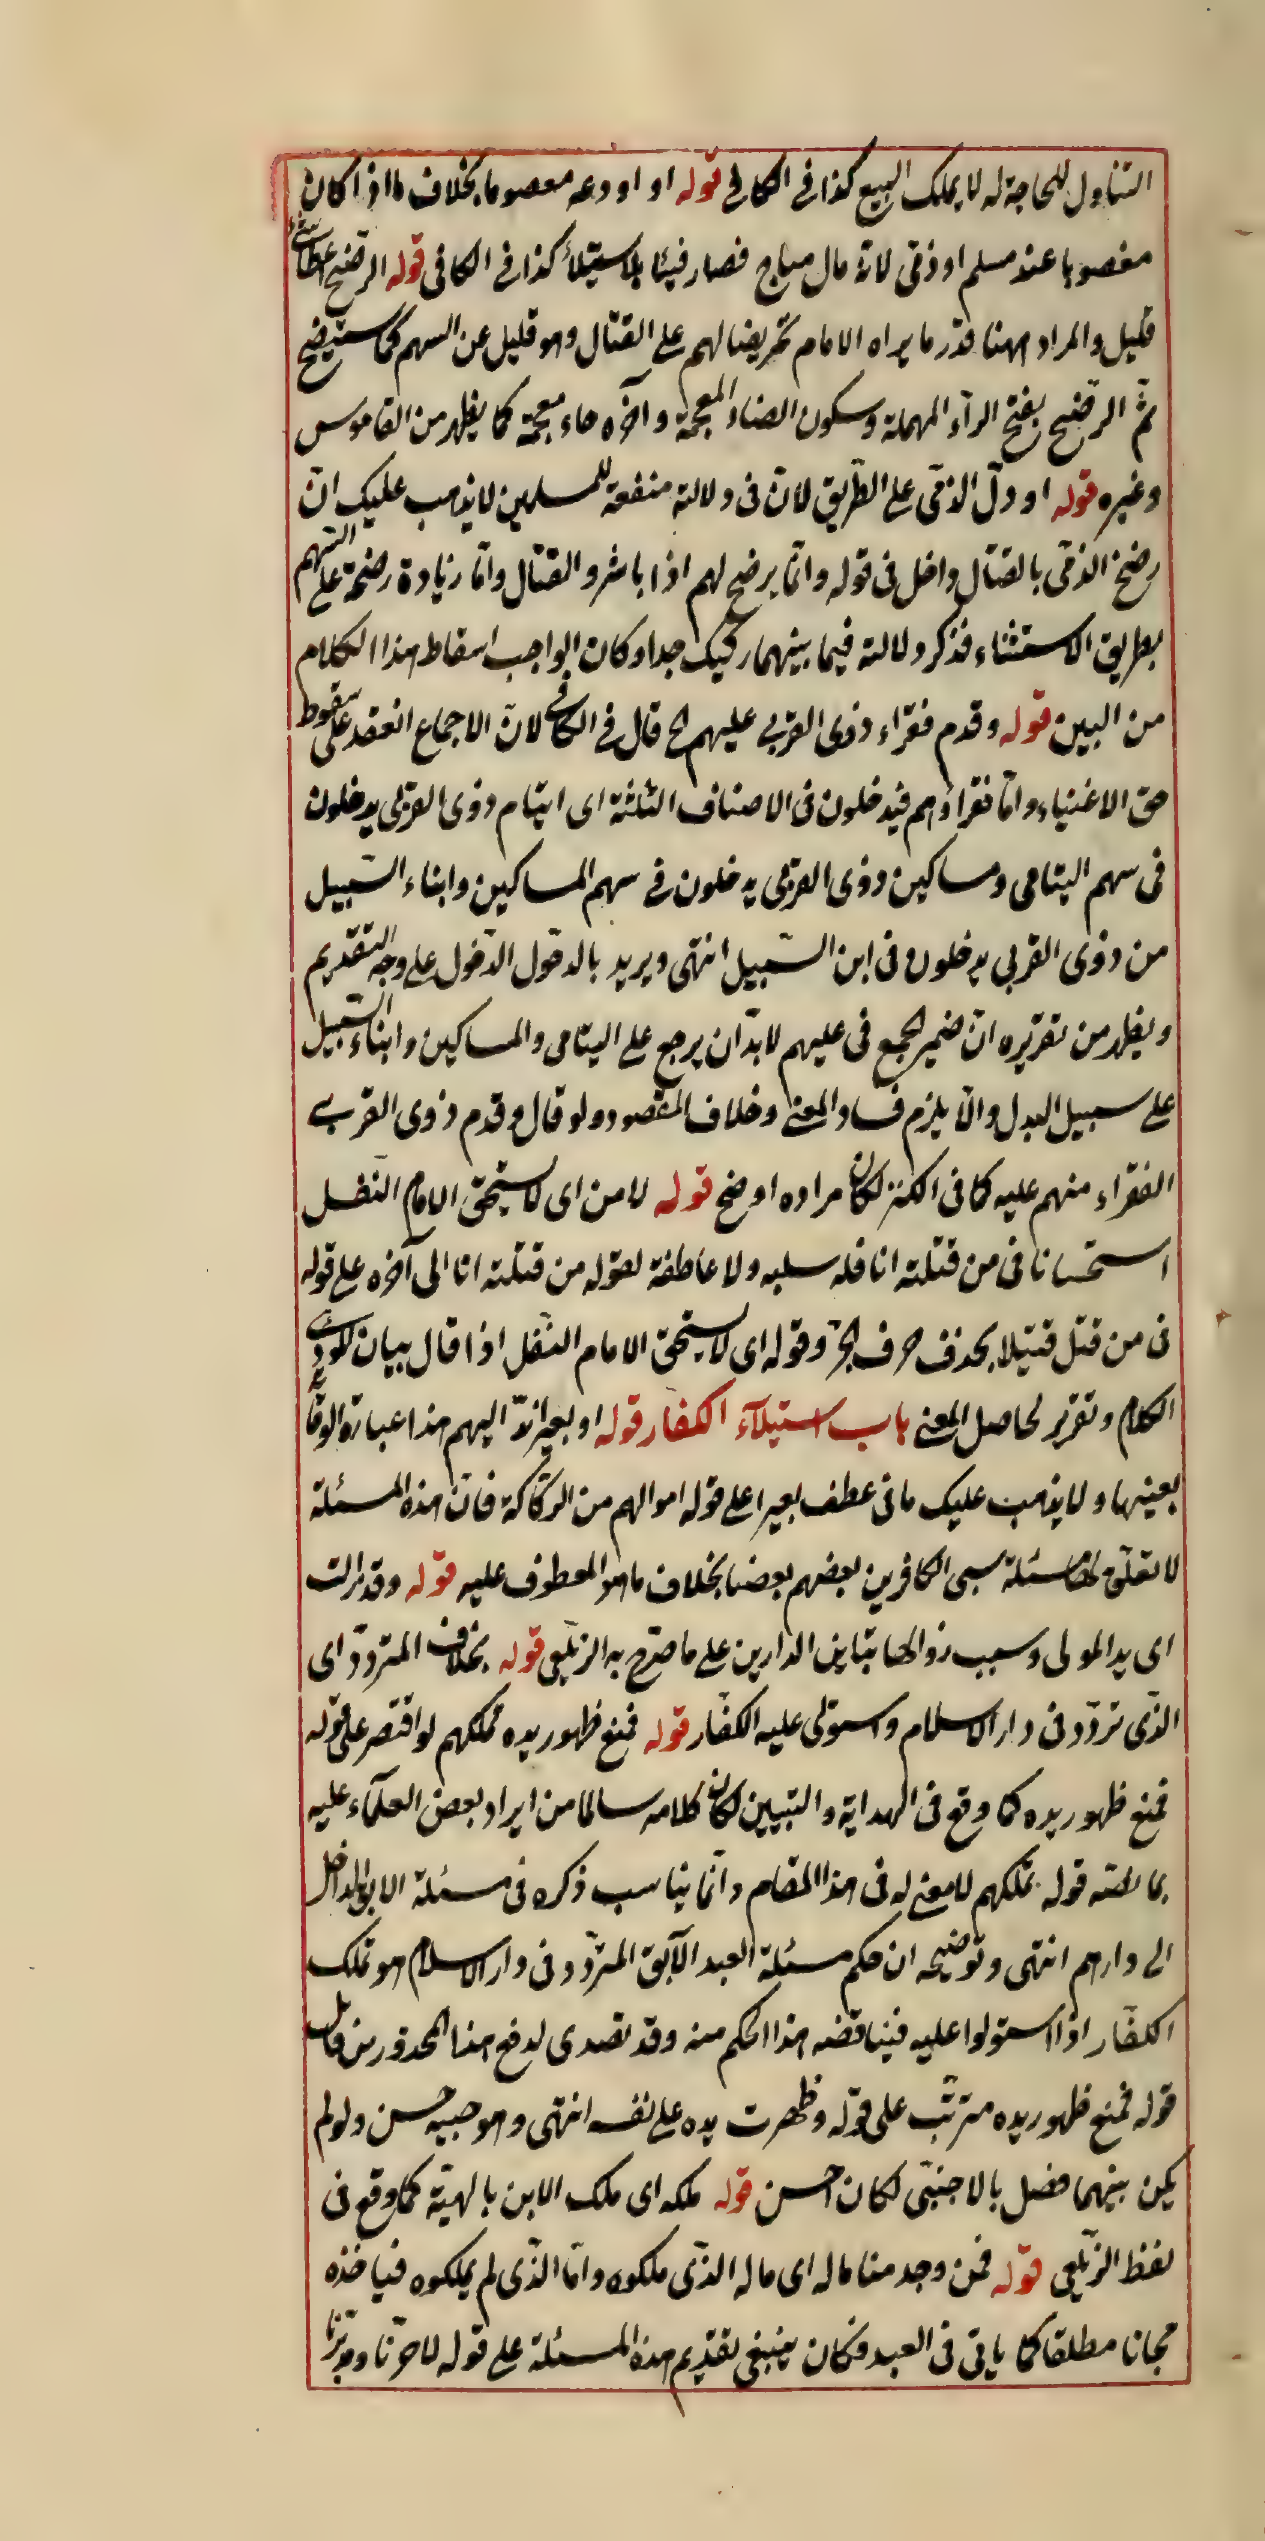 التناول للحاجة له لا يملك البيع كذا فى الكافى قوله او اودعه معصوما بخلاف ما اذا كان
مغصوبا عند مسلم او ذمّى لانّه مال مباح فصار فيئا بالاستيلاء كذا فى الكافى قوله الرضخ اعطاء شئ
قليل والمراد ههنا قدر ما يراه الامام تحريضا لهم على القتال وهو قليل عن السهم كما ستيضح
ثمّ الرضخ بفتح الرآء المهملة وسكون الضاد المعجمة وآخره خاء معجمة كما يظهر من القاموس
وغيره قوله او دلّ الذمّى على الطريق لانّ فى دلالته منفعة للمسلمين لا يذهب عليك انّ
رضخ الذمّى بالقتال داخل فى قوله وانّما يرضخ لهم اذا باشروا القتال وامّا زيادة رضخة على السهم
بطريق الاستثناء فذكر دلالته فيما بينهما ركيك جدا وكان الواجب اسقاط هذا الكلام
من البين قوله وقدم فقراء ذوى القربى عليهم الخ قال فى الكافى لانّ الاجماع انعقد على سقوط
حق الاغنياء وامّا فقراؤهم فيدخلون فى الاصناف الثلثة اى ايتام ذوى القربى يدخلون
فى سهم اليتامى ومساكين ذوى القربى يدخلون فى سهم المساكين وابناء السّبيل
من ذوى القربى يدخلون فى ابن السّبيل انتهى ويريد بالدخول الدّخول على وجه التقديم
ويظهر من تقريره انّ ضمير الجمع فى عليهم لا بدّ ان يرجع على اليتامى والمساكين وابناء السّبيل
على سبيل البدل والّا يلزم فساد المعنى وخلاف المقصود ولو قال وقدم ذوى القربى
الفقراء منهم عليه كما فى الكنز لكان مراده اوضح قوله لا من اى لا يستحقّ الامام النفل
استحسانا فى من قتلته انا فله سلبه ولا عاطفة لقوله من قتلته انا الى آخره على قوله
فى من قتل قتيلا بحذف حرف الجرّ وقوله اى لا يستحقّ الامام النّفل اذا قال بيان
الكلام وتقرير لحاصل المعنى باب استيلآء الكفار قوله او بعيرا ندّ اليهم هذا عبارة الوقاية
بعينها ولا يذهب عليك ما فى عطف بعيرا على قوله اموالهم من الركاكة فانّ هذه المسئلة
لا تعلّق لها بمسئلة سبى الكافرين بعضهم بعضا بخلاف ما هو المعطوف عليه قوله وقد زالت
اى يد المولى وسبب زوالها تباين الدارين على ما صرّح به الزيلعى قوله بخلاف المتردّد اى
الذّى تردّد فى دار الاسلام واستولى عليه الكفّار قوله فمنع ظهور يده تملكهم لو اقتصر على قوله
فمنع ظهور يده كما وقع فى الهداية والتبيين لكان كلامه سالما من ايراد بعض العلمآء عليه
بما نصّه قوله تملكهم لا معنى له فى هذا المقام وانّما يناسب ذكره فى مسئلة الابق الداخل
الى دارهم انتهى وتوضيحه ان حكم مسئلة العبد الآبق المتردّد فى دار الاسلام هو تملك
الكفّار اذا استولوا عليه فيناقضه هذا الحكم منه وقد تصدى لدفع هذا المحذور من قال
قوله فمنع ظهور يده مترتّب على قوله وظهرت يده على نفسه انتهى وهو حبيه حسن ولو لم
يكن بينهما فصل بالاجنبّى لكان احسن قوله ملكه اى ملك الابن بالهبة كما وقع فى
لفظ الزيلعى قوله فمن وجد منا ماله اى ماله الذّى ملكوه وامّا الذّى لم يملكوه فياخذه
مجانا مطلقا كما ياتى فى العبد فكان ينبغى تقديم هذه المسئلة على قوله لا حرّنا ومدبّرنا